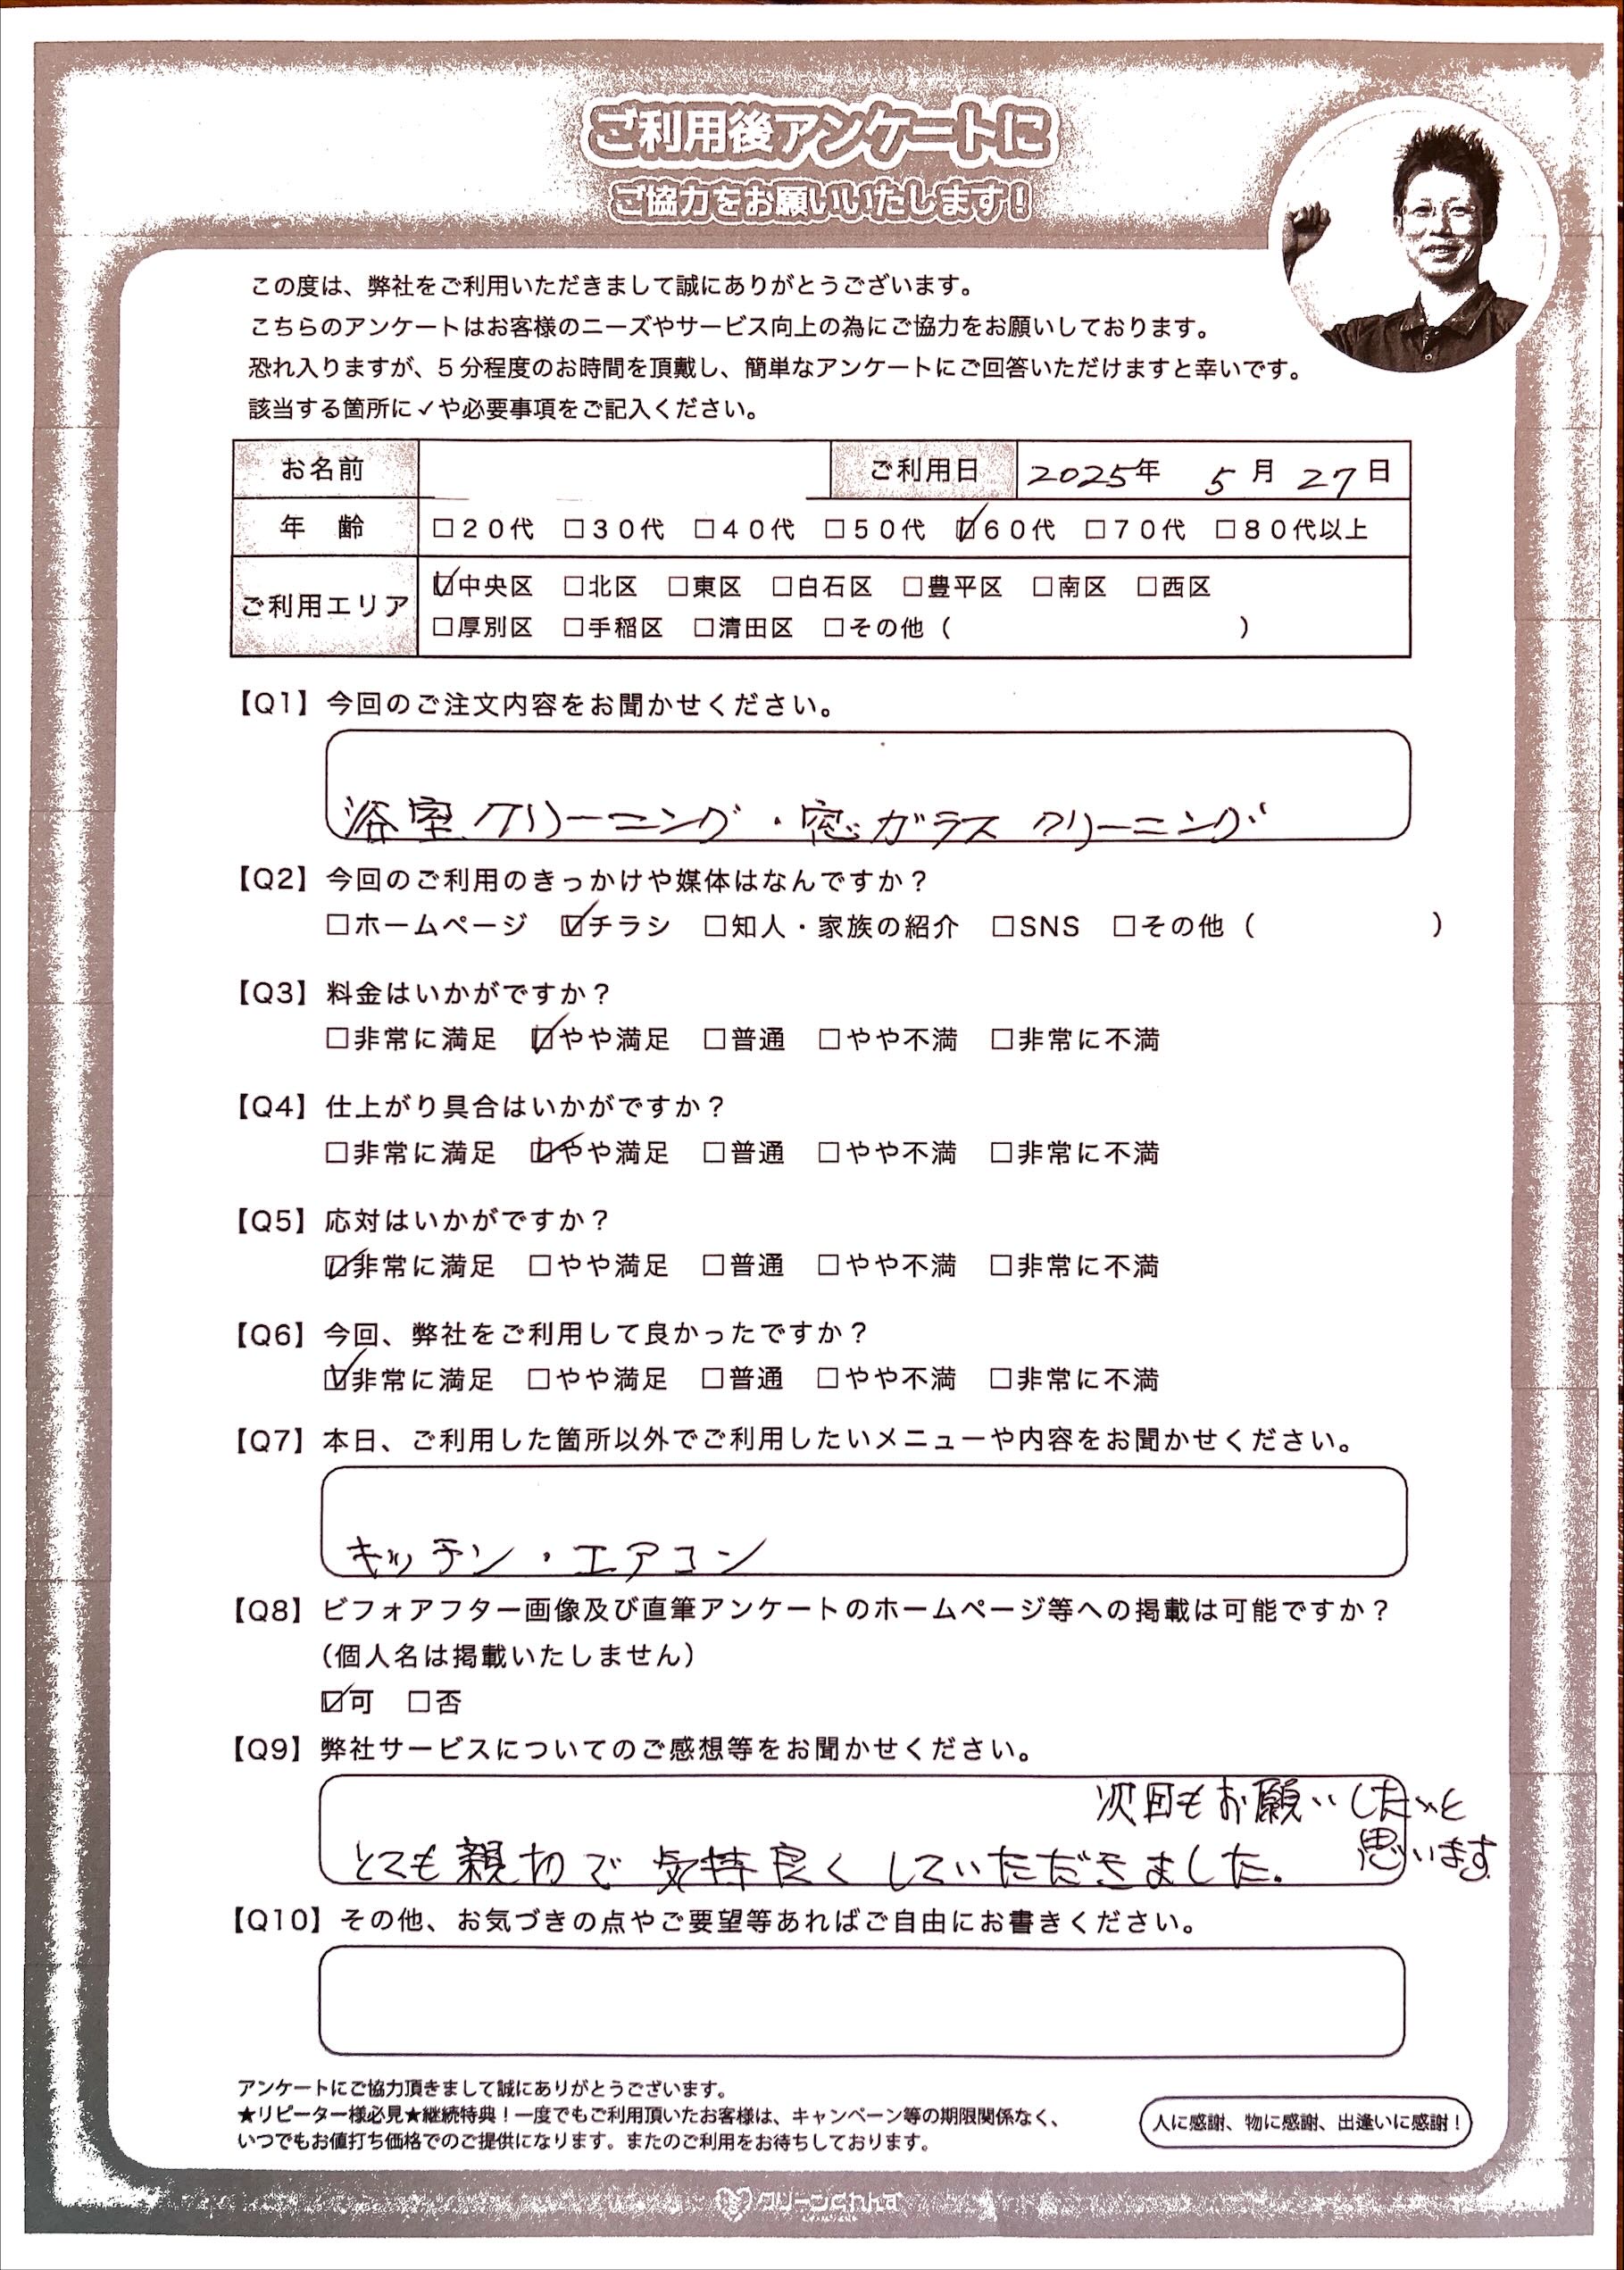 ご利用後アンケートに
ご協力をお願いいたします!
この度は、弊社をご利用いただきまして誠にありがとうございます。
こちらのアンケートはお客様のニーズやサービス向上の為にご協力をお願いしております。
恐れ入りますが、5分程度のお時間を頂戴し、簡単なアンケートにご回答いただけますと幸いです。
該当する箇所に✓や必要事項をご記入ください。
お名前 ご利用日 2025年 5月27日
年 齢 □20代 □30代 □40代 □50代 ☑60代 □70代 □80代以上
ご利用エリア ☑中央区 □北区 □東区 □白石区 □豊平区 □南区 □西区
□厚別区 □手稲区 □清田区 □その他( )
【Q1】今回のご注文内容をお聞かせください。
浴室クリーニング・窓ガラスクリーニング
【Q2】今回のご利用のきっかけや媒体はなんですか?
□ホームページ ☑チラシ □知人・家族の紹介 □SNS □その他( )
【Q3】料金はいかがですか?
□非常に満足 ☑やや満足 □普通 □やや不満 □非常に不満
【Q4】仕上がり具合はいかがですか?
□非常に満足 ☑やや満足 □普通 □やや不満 □非常に不満
【Q5】応対はいかがですか?
☑非常に満足 □やや満足 □普通 □やや不満 □非常に不満
【Q6】今回、弊社をご利用して良かったですか?
☑非常に満足 □やや満足 □普通 □やや不満 □非常に不満
【Q7】本日、ご利用した箇所以外でご利用したいメニューや内容をお聞かせください。
キッチン・エアコン
【Q8】ビフォアフター画像及び直筆アンケートのホームページ等への掲載は可能ですか?
(個人名は掲載いたしません)
☑可 □否
【Q9】弊社サービスについてのご感想等をお聞かせください。
とても親切で気持良くしていただきました。
次回もお願いしたいと
思います
【Q10】その他、お気づきの点やご要望等あればご自由にお書きください。
アンケートにご協力頂きまして誠にありがとうございます。
★リピーター様必見★継続特典!一度でもご利用頂いたお客様は、キャンペーン等の期限関係なく、
いつでもお値打ち価格でのご提供になります。またのご利用をお待ちしております。
人に感謝、物に感謝、出逢いに感謝!